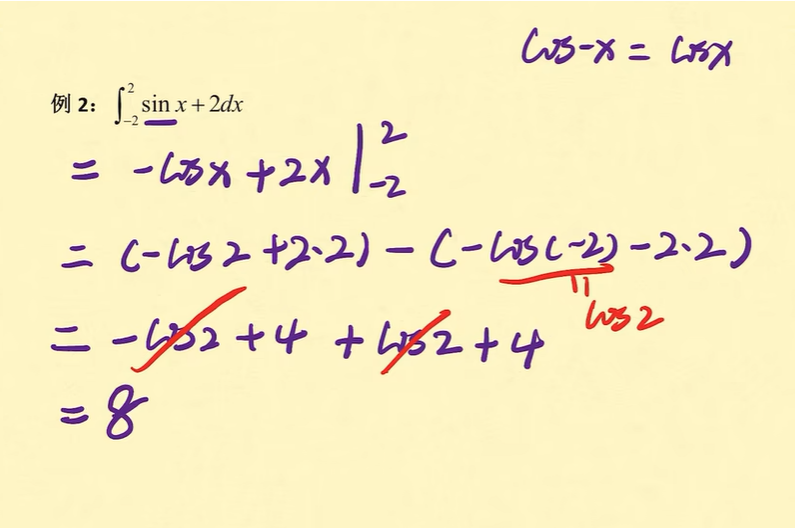 cos-x = cosx
例 2： ∫_{-2}^{2} sin x + 2dx
= -cosx + 2x |_{-2}^{2}
= (-cos2 + 2·2) - (-cos(-2) - 2·2)
cos2
= -cos2 + 4 + cos2 + 4
= 8